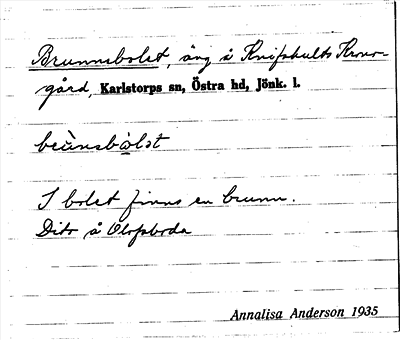 Brunnsbolet, äng å Knifshults Herre-
gård, Karlstorps sn, Östra hd, Jönk. l.
I bolet finns en brunn.
Dito å Olofsboda
Annalisa Anderson 1935